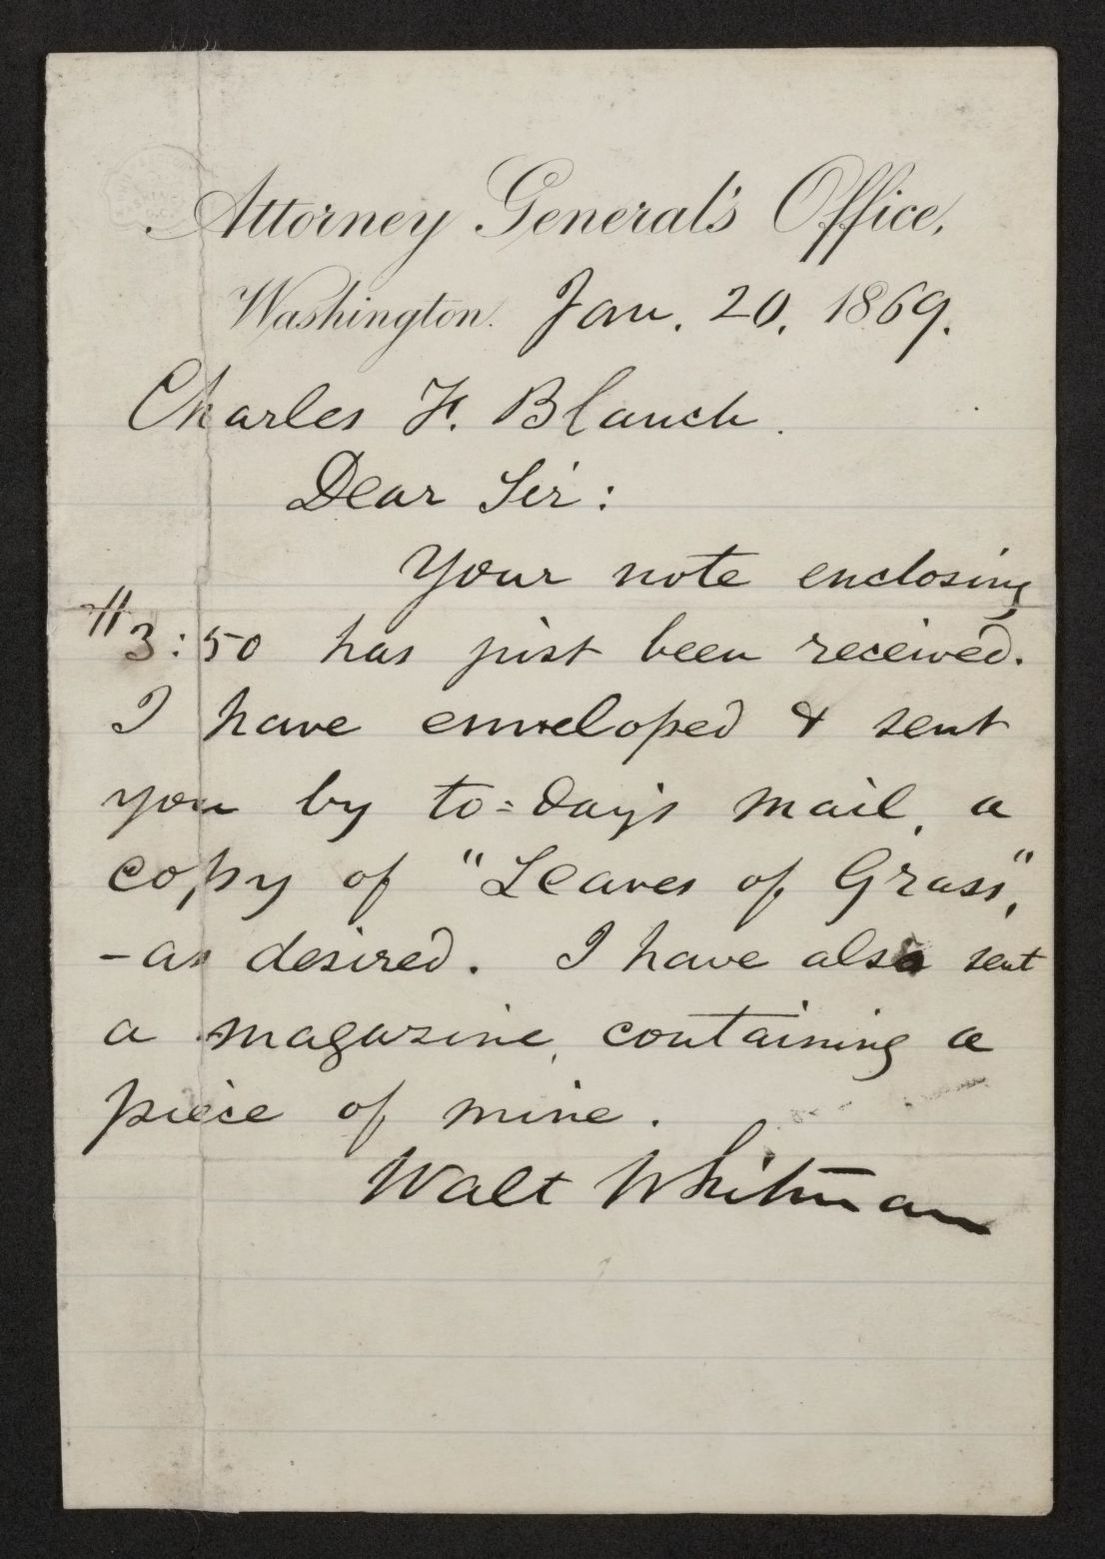 Attorney General's Office,
Washington. Jan. 20, 1869.
Charles F. Blanch.
Dear Sir:
Your note enclosing
$3:50 has just been received.
I have enveloped & sent
you by to=day's mail, a
copy of "Leaves of Grass",
—as desired. I have also sent
a magazine, containing a
piece of mine.
Walt Whitman